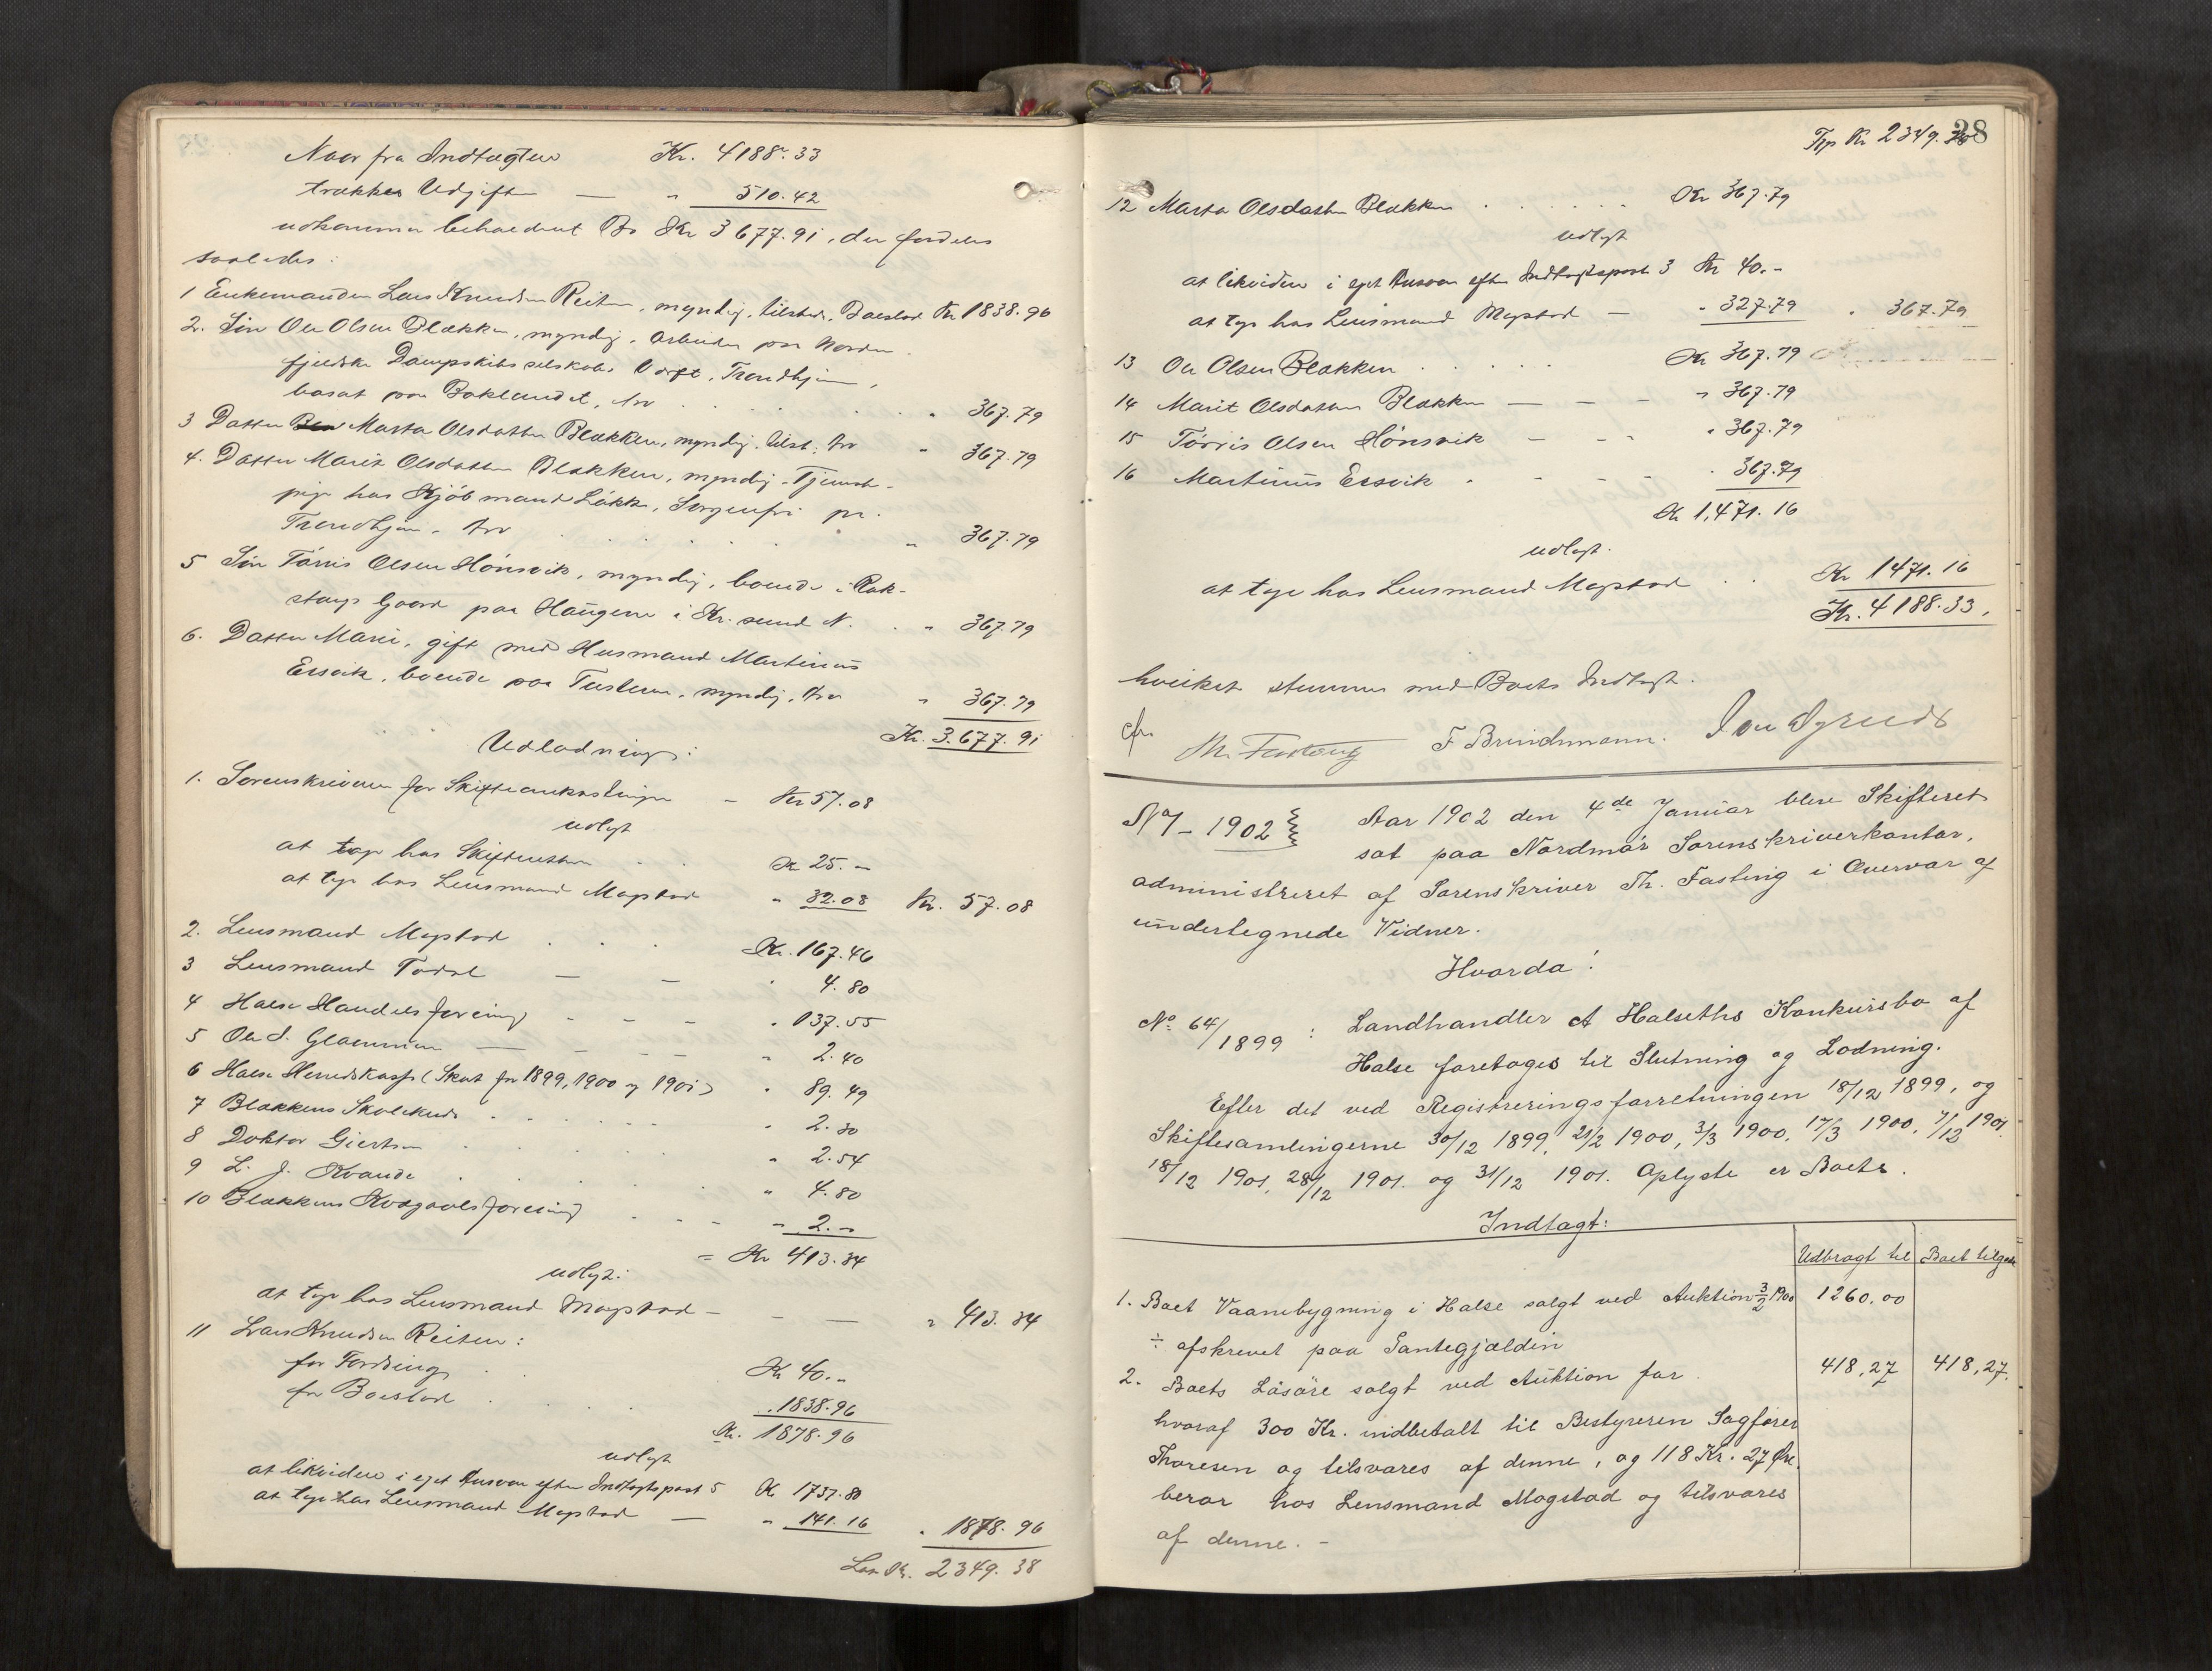 Naar fra Indtægten Kr. 4188.33
trækkes Udgiften — " 510.42
udkommer beholdent Bo Kr 3677.91, der fordeles
saaledes:
1 Enkemanden Lars Knudsen Reiten, myndig, tilstede, Boeslod Kr 1838.96
2. Søn Ole Olsen Blækken, myndig, Arbeider paa Norden-
fjeldske Dampskibsselskabs Værft, Trondhjem,
bosat paa Baklandet, Arv . . . " 367.79
3 Datter Marta Olsdatter Blækken, myndig, tilst., Arv " 367.79
4. Datter Marit Olsdatter Blækken, myndig, Tjeneste-
pige hos Kjøbmand Løkke, Sorgenfri pr.
Trondhjem, Arv . . . " 367.79
5 Søn Tørris Olsen Hønsvik, myndig, boende i Rok-
stags Gaard paa Haugene i Kr.sund N. . " 367.79
6. Datter Marie, gift med Husmand Martinus
Ersvik, boende paa Tusteren, myndig, Arv " 367.79
Kr. 3.677.91
Udlodning:
1. Sorenskriveren for Skifteomkostninger — Kr 57.08
udlagt
at tage hos Skifteretten . . Kr 25.—
at tage hos Lensmand Magstad " 32.08 Kr. 57.08
2. Lensmand Magstad . . . Kr. 167.46
3 Lensmand Todal — — " 4.80
4 Halse Handelsforening - - - " 137.55
5 Ole S. Glærum — - - - " 2.40
6 Halse Herredskasse (Skat for 1899, 1900 og 1901) " 89.49
7 Blækkens Skolekreds . . . . " 2.30
8 Doktor Giertsen . . . . " 2.54
9 L. J. Kvande . . . . " 4.80
10 Blækkens Kvægavlsforening . - - - " 2.—
= Kr 413.34
udlagt:
at tage hos Lensmand Magstad — — — " 413.34
11 Lars Knudsen Reiten:
for Fordring . . Kr 40.—
for Boeslod . . . . " 1838.96
Kr. 1878.96
udlagt
at likvidere i eget Ansvar efter Indtægtspost 5 Kr 1737.80
at tage hos Lensmand Magstad — " 141.16 " 1878.96
Lar Kr. 2349.38
28
Trp Kr 2349.38
12 Marta Olsdatter Blækken . . . . . . Kr 367.79
udlagt
at likvidere i eget Ansvar efter Indtægtspost 3 Kr 40.—
at tage hos Lensmand Magstad — " 327.79 " 367.79
13 Ole Olsen Blækken . . . . . Kr 367.79
14 Marit Olsdatter Blækken — — — " 367.79
15 Tørris Olsen Hønsvik — - - " 367.79
16 Martinus Ersvik . - - - " 367.79
Kr 1,471.16
udlagt.
at tage hos Lensmand Magstad . . Kr 1471.16
Kr. 4188.33.
hvilket stemmer med Boets Indtægt.
Th. Fasting F Brinchmann.
No 1 - 1902 Aar 1902 den 4de Januar blev Skifteret
sat paa Nordmør Sorenskriverkontor,
administreret af Sorenskriver Th. Fasting i Overvær af
undertegnede Vidner.
Hvorda!
No. 64/1899 : Landhandler A Halseths Konkursbo af
Halse foretages til Slutning og Lodning.
Efter det ved Registreringsforretningen 18/12 1899, og
Skiftesamlingerne 30/12 1899, 21/2 1900, 3/3 1900, 17/3 1900, 7/12 1901,
18/12 1901, 28/12 1901. og 31/12 1901. Oplyste er Boets.
Indtægt:
Udbragt til Boet tilgode
1. Boet Vaanebygning i Halse solgt ved Auktion 3/2 1900 1260.00
÷ afskrevet paa Pantegjælden
2. Boets Løsøre solgt ved Auktion for . 418,27 418,27.
hvoraf 300 Kr. indbetalt til Bestyreren Sagfører
Thoresen og tilsvares af denne, og 118 Kr. 27 Øre.
beror hos Lensmand Magstad og tilsvares
af denne. —